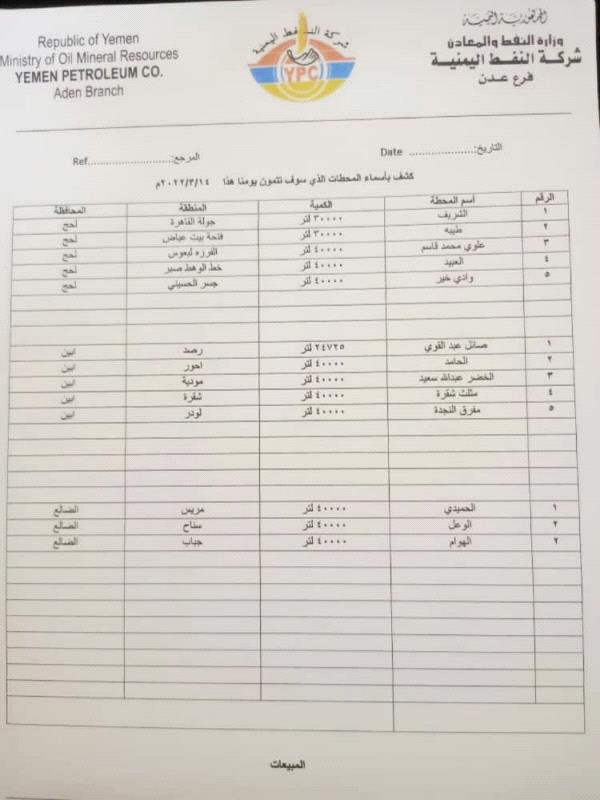 Republic of Yemen
Ministry of Oil Mineral Resources
YEMEN PETROLEUM CO.
Aden Branch
شركة النفط اليمنية
YPC
الجمهورية اليمنية
وزارة النفط والمعادن
شركة النفط اليمنية
فرع عدن
التاريخ:.................. Date
المرجع:.......................Ref
كشف بأسماء المحطات الذي سوف تتمون يومنا هذا ٢٠٢٢/٣/١٤م
الرقم اسم المحطة الكمية المنطقة المحافظة
١ الشريف ٣٠٠٠٠ لتر جولة القاهرة لحج
٢ طيبه ٣٠٠٠٠ لتر فتحة بيت عياض لحج
٣ علوي محمد قاسم ٤٠٠٠٠ لتر القرزه لبعوس لحج
٤ العبيد ٤٠٠٠٠ لتر خط الوهط صبر لحج
٥ وادي خير ٤٠٠٠٠ لتر جسر الحسيني لحج
١ صائل عبد القوي ٢٤٧٢٥ لتر رصد ابين
٢ الحامد ٤٠٠٠٠ لتر احور ابين
٣ الخضر عبدالله سعيد ٤٠٠٠٠ لتر مودية ابين
٤ مثلث شقرة ٤٠٠٠٠ لتر شقرة ابين
٥ مفرق النجدة ٤٠٠٠٠ لتر لودر ابين
١ الحميدي ٤٠٠٠٠ لتر مريس الضالع
٢ الوعل ٤٠٠٠٠ لتر سناح الضالع
٢ الهوام ٤٠٠٠٠ لتر جباب الضالع
المبيعات